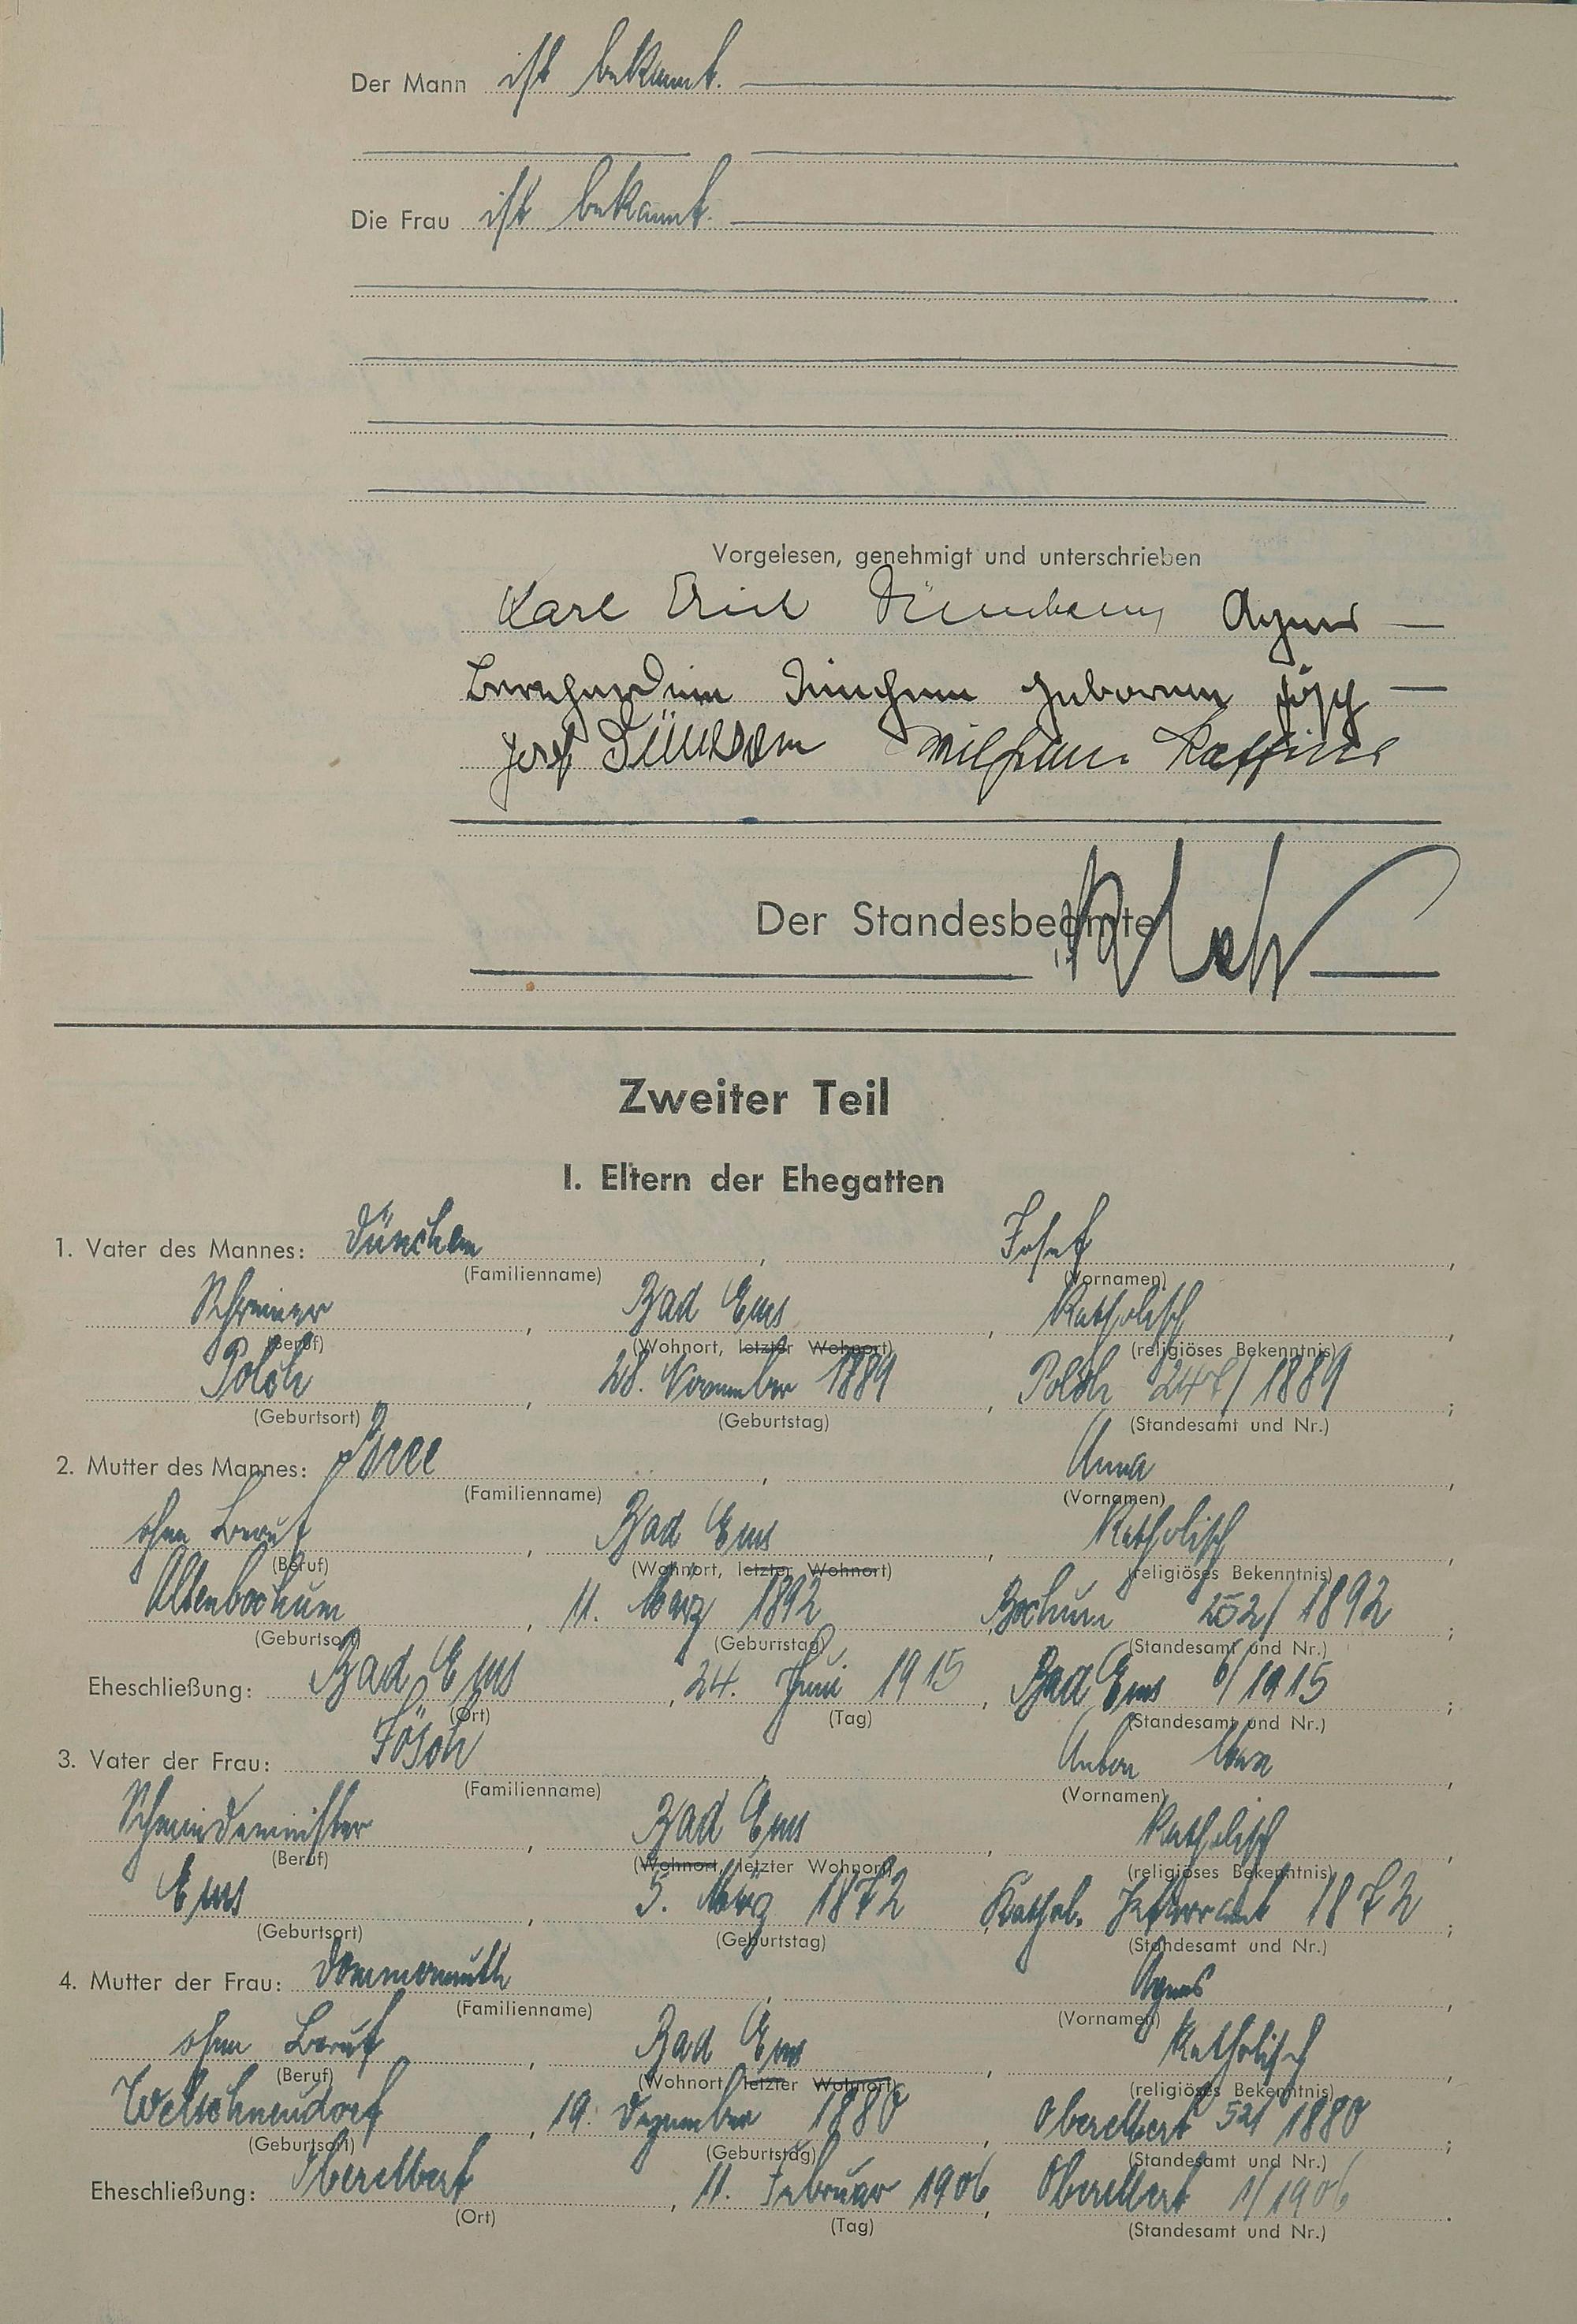 Der Mann ist bekannt.
Die Frau ist bekannt.
Vorgelesen, genehmigt und unterschrieben
Karl Erich Dünchem Agnes
Bernhardine Dünchem geborene Jösch
Josef Dünchem Wilhelm
Der Standesbeamte
Zweiter Teil
I. Eltern der Ehegatten
1. Vater des Mannes: Dünchem, Josef,
(Familienname) (Vornamen)
Schreiner, Bad Ems, Katholisch,
(Beruf) (Wohnort, letzter Wohnort) (religiöses Bekenntnis)
Polch, 28. November 1889, Polch 247/1889;
(Geburtsort) (Geburtstag) (Standesamt und Nr.)
2. Mutter des Mannes:, Anna,
(Familienname) (Vornamen)
ohne Beruf, Bad Ems, Katholisch,
(Beruf) (Wohnort, letzter Wohnort) (religiöses Bekenntnis)
Altenbochum, 11. März 1892, Bochum 252/1892;
(Geburtsort) (Geburtstag) (Standesamt und Nr.)
Eheschließung: Bad Ems, 24. Juni 1915, Bad Ems 6/1915;
(Ort) (Tag) (Standesamt und Nr.)
3. Vater der Frau: Jösch, Anton Max,
(Familienname) (Vornamen)
Schmiedemeister, Bad Ems, Katholisch,
(Beruf) (Wohnort, letzter Wohnort) (religiöses Bekenntnis)
Ems, 5. März 1872, Kathol. Pfarramt 1872;
(Geburtsort) (Geburtstag) (Standesamt und Nr.)
4. Mutter der Frau: Dommermuth, Agnes,
(Familienname) (Vornamen)
ohne Beruf, Bad Ems, Katholisch,
(Beruf) (Wohnort letzter Wohnort) (religiöses Bekenntnis)
Welschneudorf, 19. Dezember 1880, Oberelbert 52/1880;
(Geburtsort) (Geburtstag) (Standesamt und Nr.)
Eheschließung: Oberelbert, 11. Februar 1906, Oberelbert 1/1906.
(Ort) (Tag) (Standesamt und Nr.)